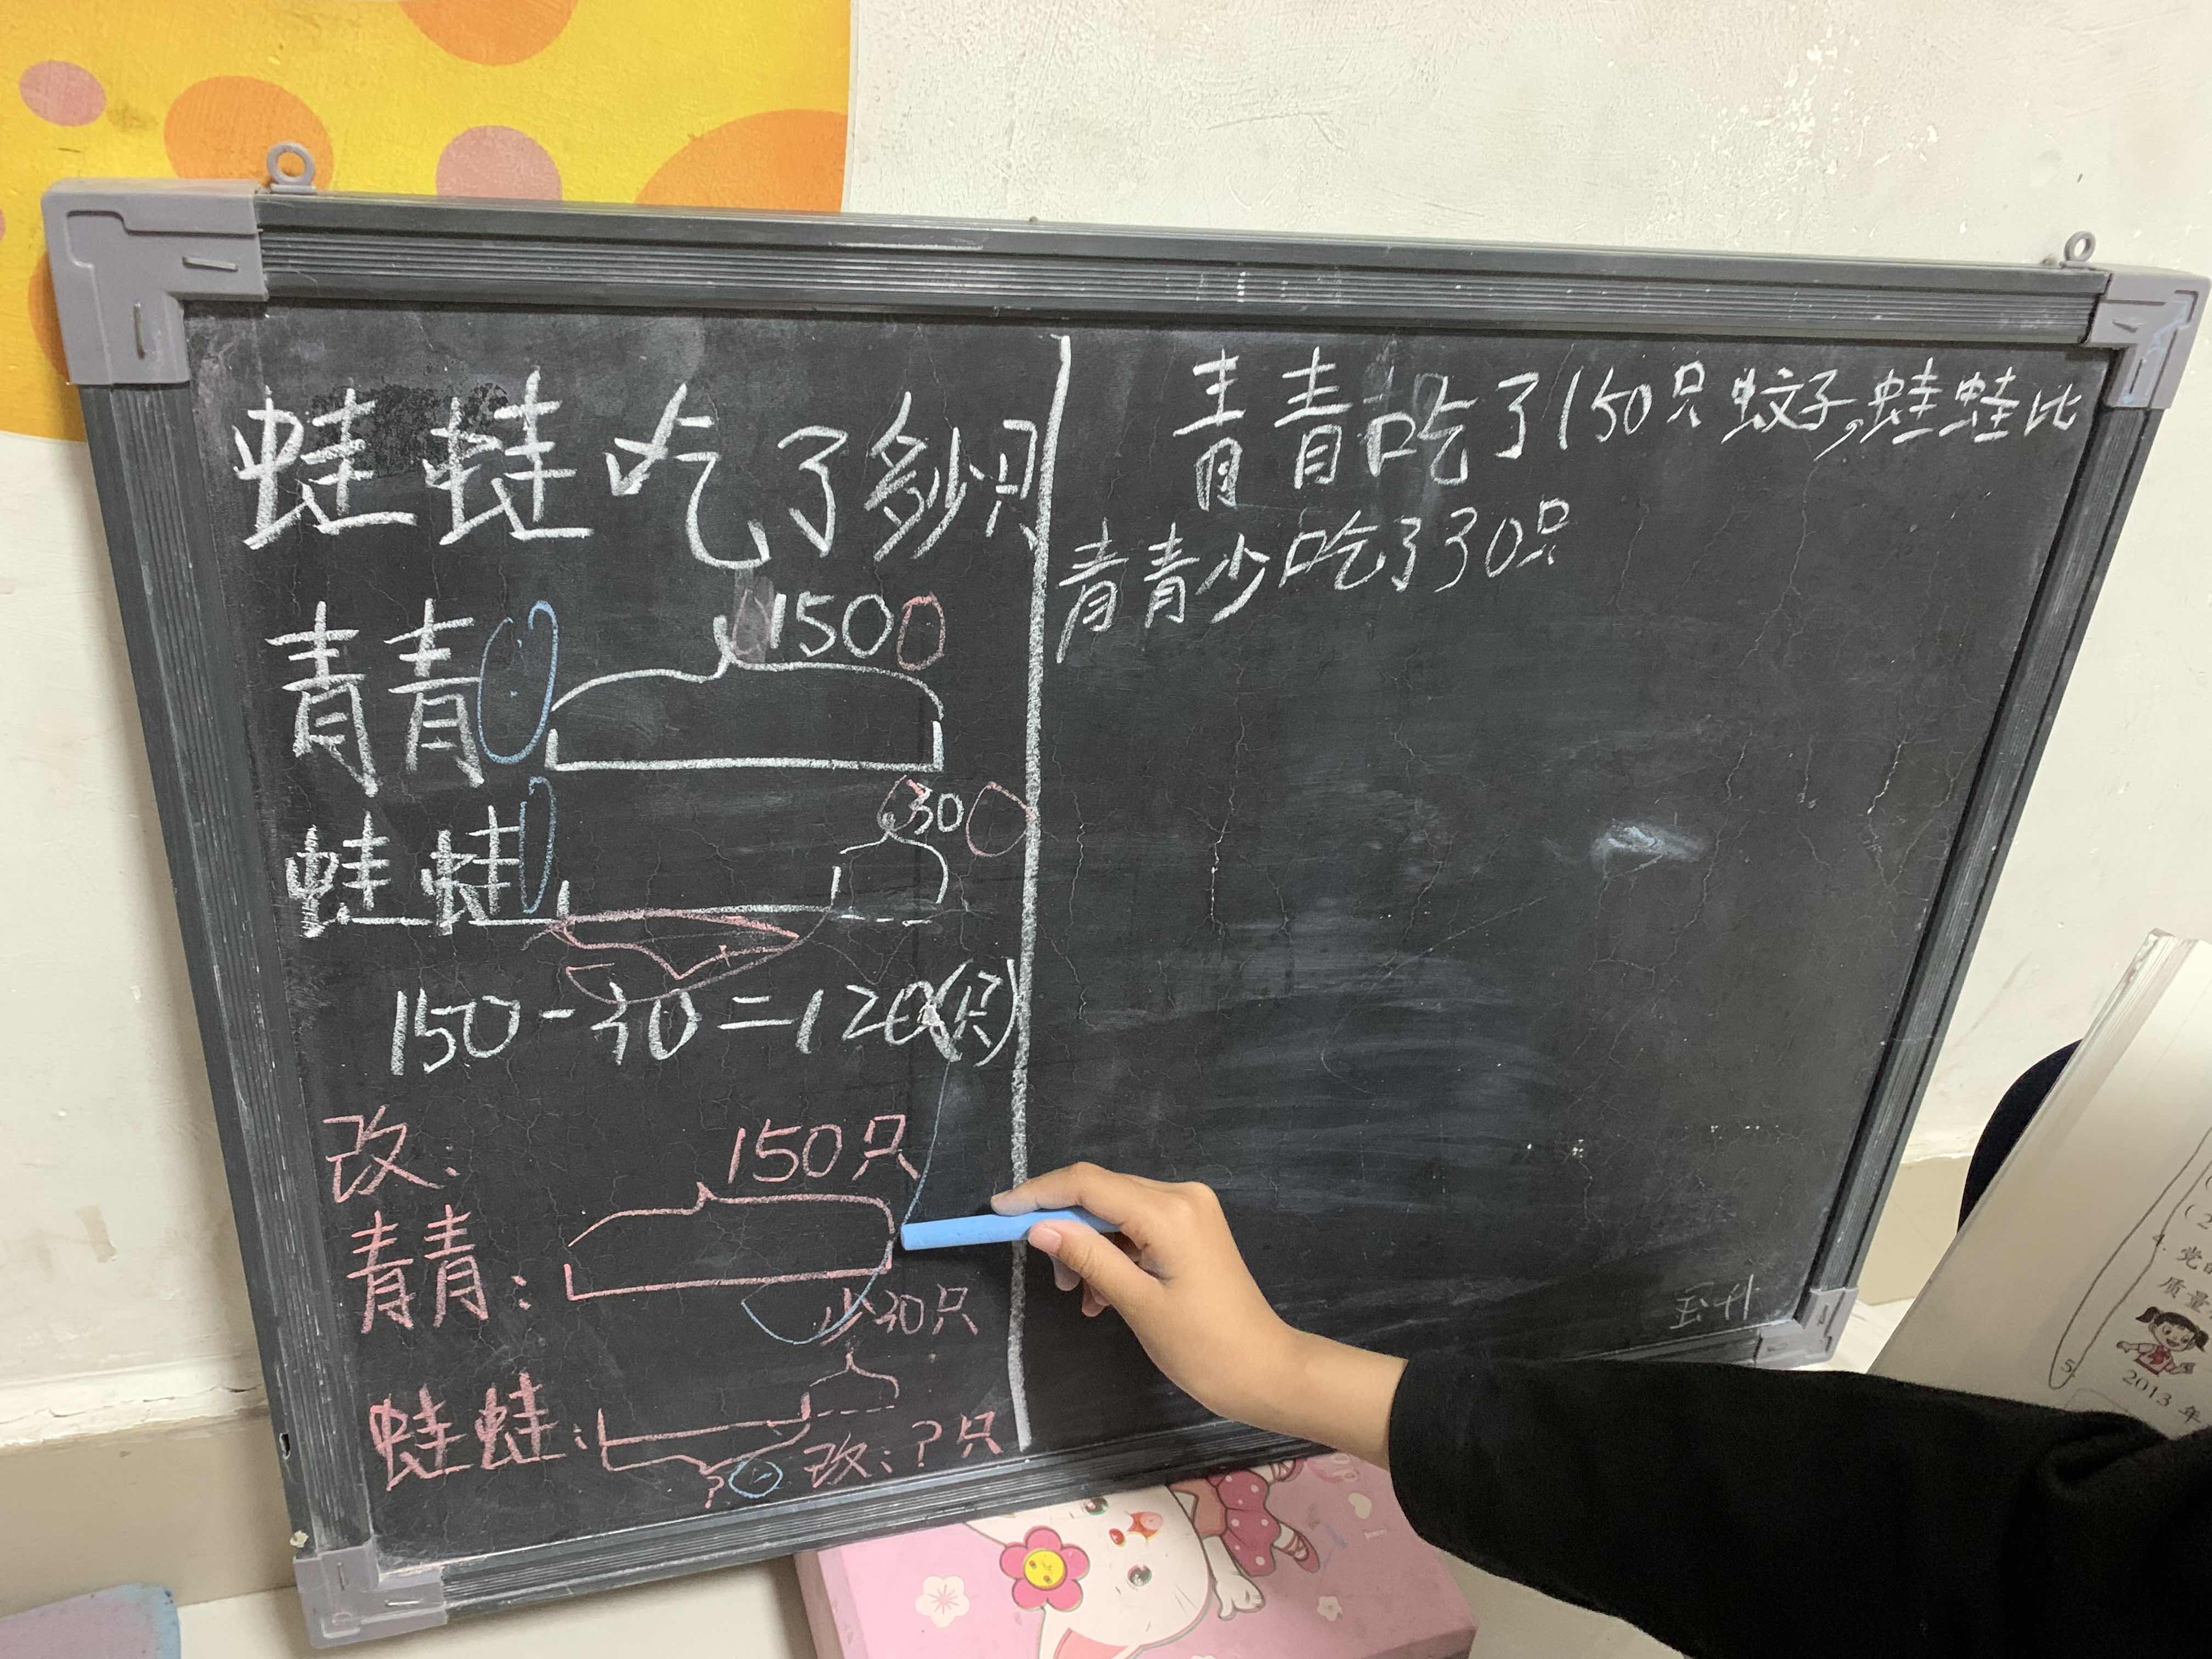 蛙蛙吃了多少只
青青
150
蛙蛙
30
150-30=120(只)
改:
150只
青青:
少30只
蛙蛙:
?
改:?只
青青吃了150只蚊子,蛙蛙比
青青少吃了30只
(2
党
质量
5.
2013年